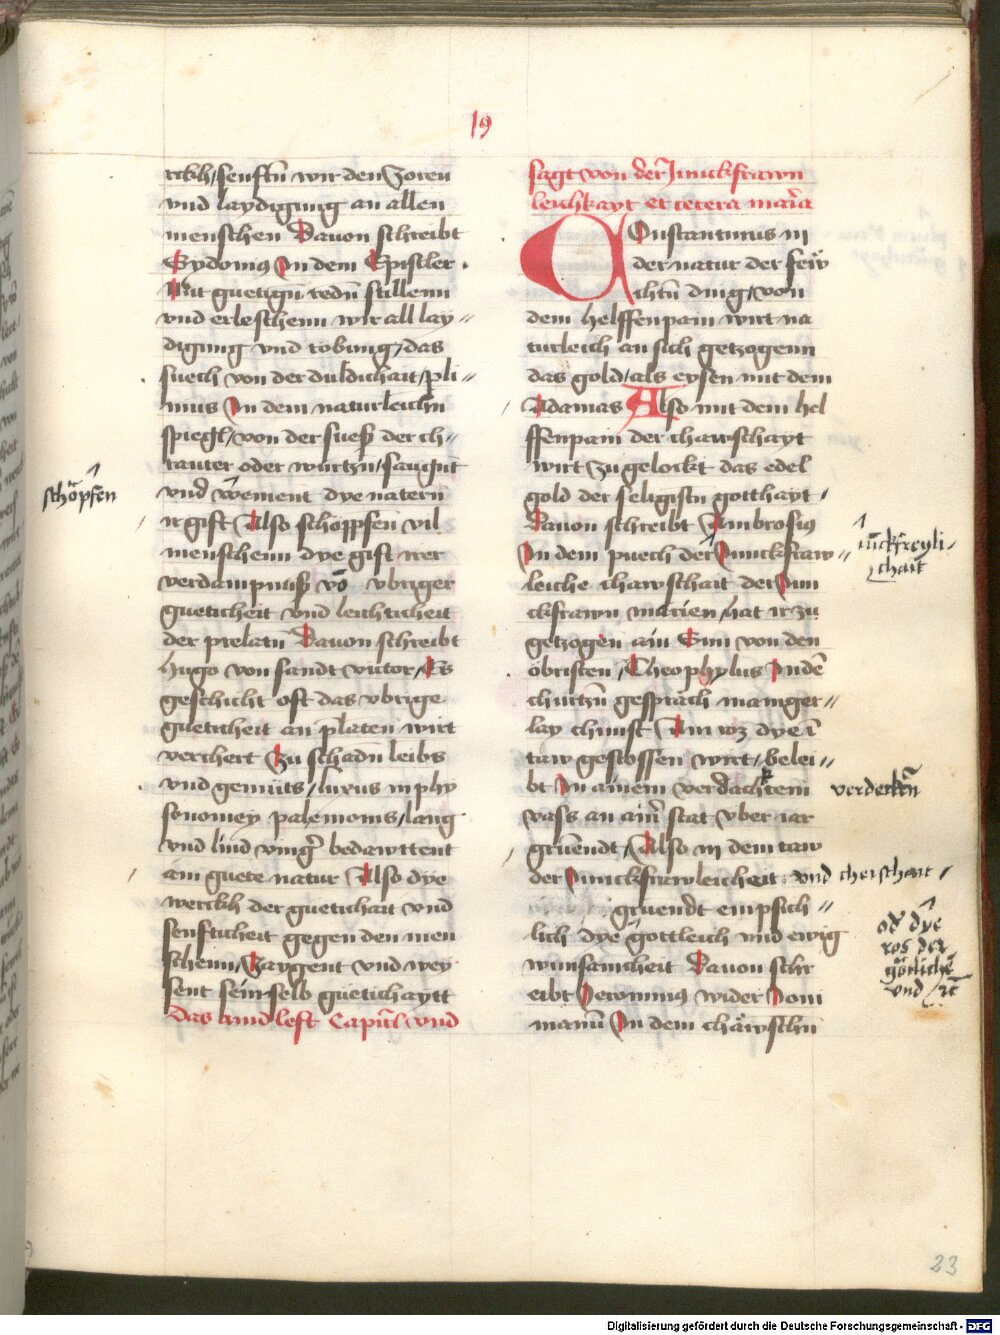 19
rckh/senftn̄ wir den Zoren
vnd laydigung an allen
menschen Dauon schreibt
Sydonius In dem Epistler
Mit guetign̄ redn̄ stillenn
vnd erleschenn wir all lay//
digung vnd tobung/das
suech von der duldichait/pli//
nius In dem naturleichn̄
spiegl/von der suesß der ch//
rauter oder wurtzn/saugnt
vnd wement dye natern
ir gift Also schöppfen vil
menschenn dye gift irer
verdampnusß vō vbriger
gueticheit vnd leichticheit
der prelatn Dauon schreibt
hugo von sandt victor/Es
geschicht oft das vbrige
gueticheit an p̄laten wirt
verchert Zu schadn̄ leibs
vnd gemüts/lurus in phy
sonomey palemonis/lang
vnd lind vinḡ bedawttent
ain guete natur Also dye
werckh der guetichait vnd
senfticheit gegen den men
schenn/Zaygent vnd wey
sent sein selb guetichaytt
Das aind left Capitl vnd
schöpfen
sagt von der Junckfrawn
leichkayt et cetera maria
COnstantinus in
der natur der sew
ichtn̄ ding/von
dem helffenpain wirt na
turleich an sich getzogenn
das gold/als eysen mit dem
Adamas Also mit dem hel
ffenpain der chawschayt
wirt zu gelockt das edel
gold der seligistn gotthayt/
Dauon schreibt Ambrosius
In dem puech der Junckfraw//
leiche chawschait der Jun
ckfrawn marien/hat ir zu
getzogen ain Sun von den
öbristen/Theophylus In dē
churtzn̄ gespräch maniger//
lay chunst Ain roz dye ī
taw gestossen wirt/belei//
bt In ainem verdachtem
vass an aim̄ stat vber iar
gruendt/Also in dem taw
der Junckfrawleicheit vnd cheischait/
gruendt empfich//
lich dye gottleich vnd ewig
wunsamcheit Dauon schr
eibt Jeronimus wider Joui
manū In dem chäwschn̄
iūckfreyli-
chait
verdecktn̄
od dye
ros der
götlichē
vnd
23
Digitalisierung gefördert durch die Deutsche Forschungsgemeinschaft - DFG